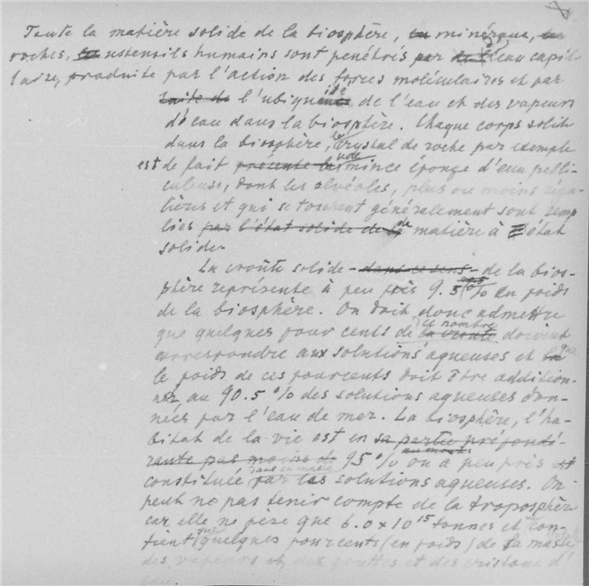 Toute la matière solide de la biosphère, les minéraux, les
roches, les ustensils humains sont penétrés par de l'eau capil-
laire, produite par l'action des forces moléculaires et par
suite de l'ubiquité de l'eau et des vapeurs
d'eau dans la biosphère. Chaque corps solide
dans la biosphère, le crystal de roche par exemple
est de fait présente les une mince éponge d'eau pelli-
culeuse, dont les alvéoles, plus ou moins régu-
lières et qui se touchent généralement sont remp-
lies par l'état solide de la de matière à l'état
solide.
La croûte solide - dans ce sens - de la bios-
phère représente à peu près 9.5% en poids
de la biosphère. On doit donc admettre
que quelques pour cents de la croûte ce nombre doivent
correspondre aux solutions aqueuses et que
le poids de ces pourcents doit être addition-
né au 90.5% des solutions aqueuses don-
nées par l'eau de mer. La biosphère, l'ha-
bitat de la vie est en sa partie prépondé-
rante pas moins de au moins 95% ou à peu près est
constituée dans sa masse par les solutions aqueuses. On
peut ne pas tenir compte de la troposphère
car elle ne pèse que 6.0 x 10^15 tonnes et con-
tient quelques pourcents (en poids) de la masse
des vapeurs et des gouttes et des cristaux d'
eau.